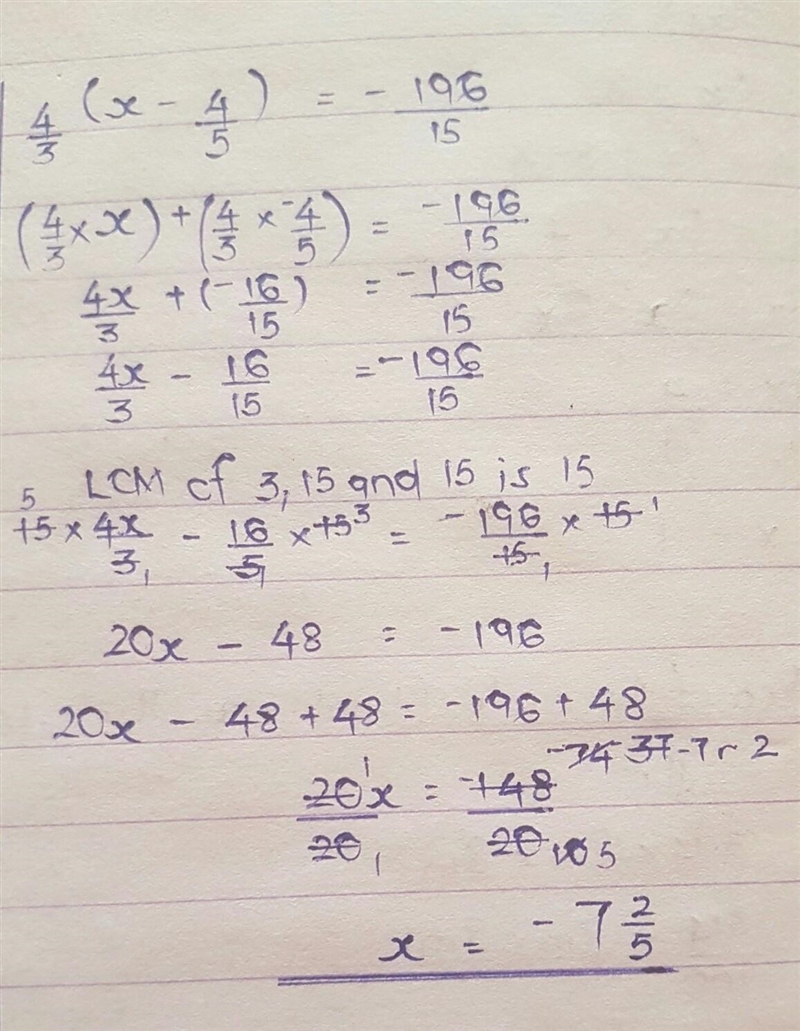 4/3 (x - 4/5) = - 196/15
(4/3 × x) + (4/3 × -4/5) = -196/15
4x/3 + (-16/15) = -196/15
4x/3 - 16/15 = -196/15
LCM of 3, 15 and 15 is 15
5 15 × 4x/3 1 - 16/5 1 × 15 3 = -196/15 1 × 15 1
20x - 48 = -196
20x - 48 + 48 = -196 + 48
20 1 x/20 1 = -148 -74 37 -7 r 2/20 10 5
x = -7 2/5